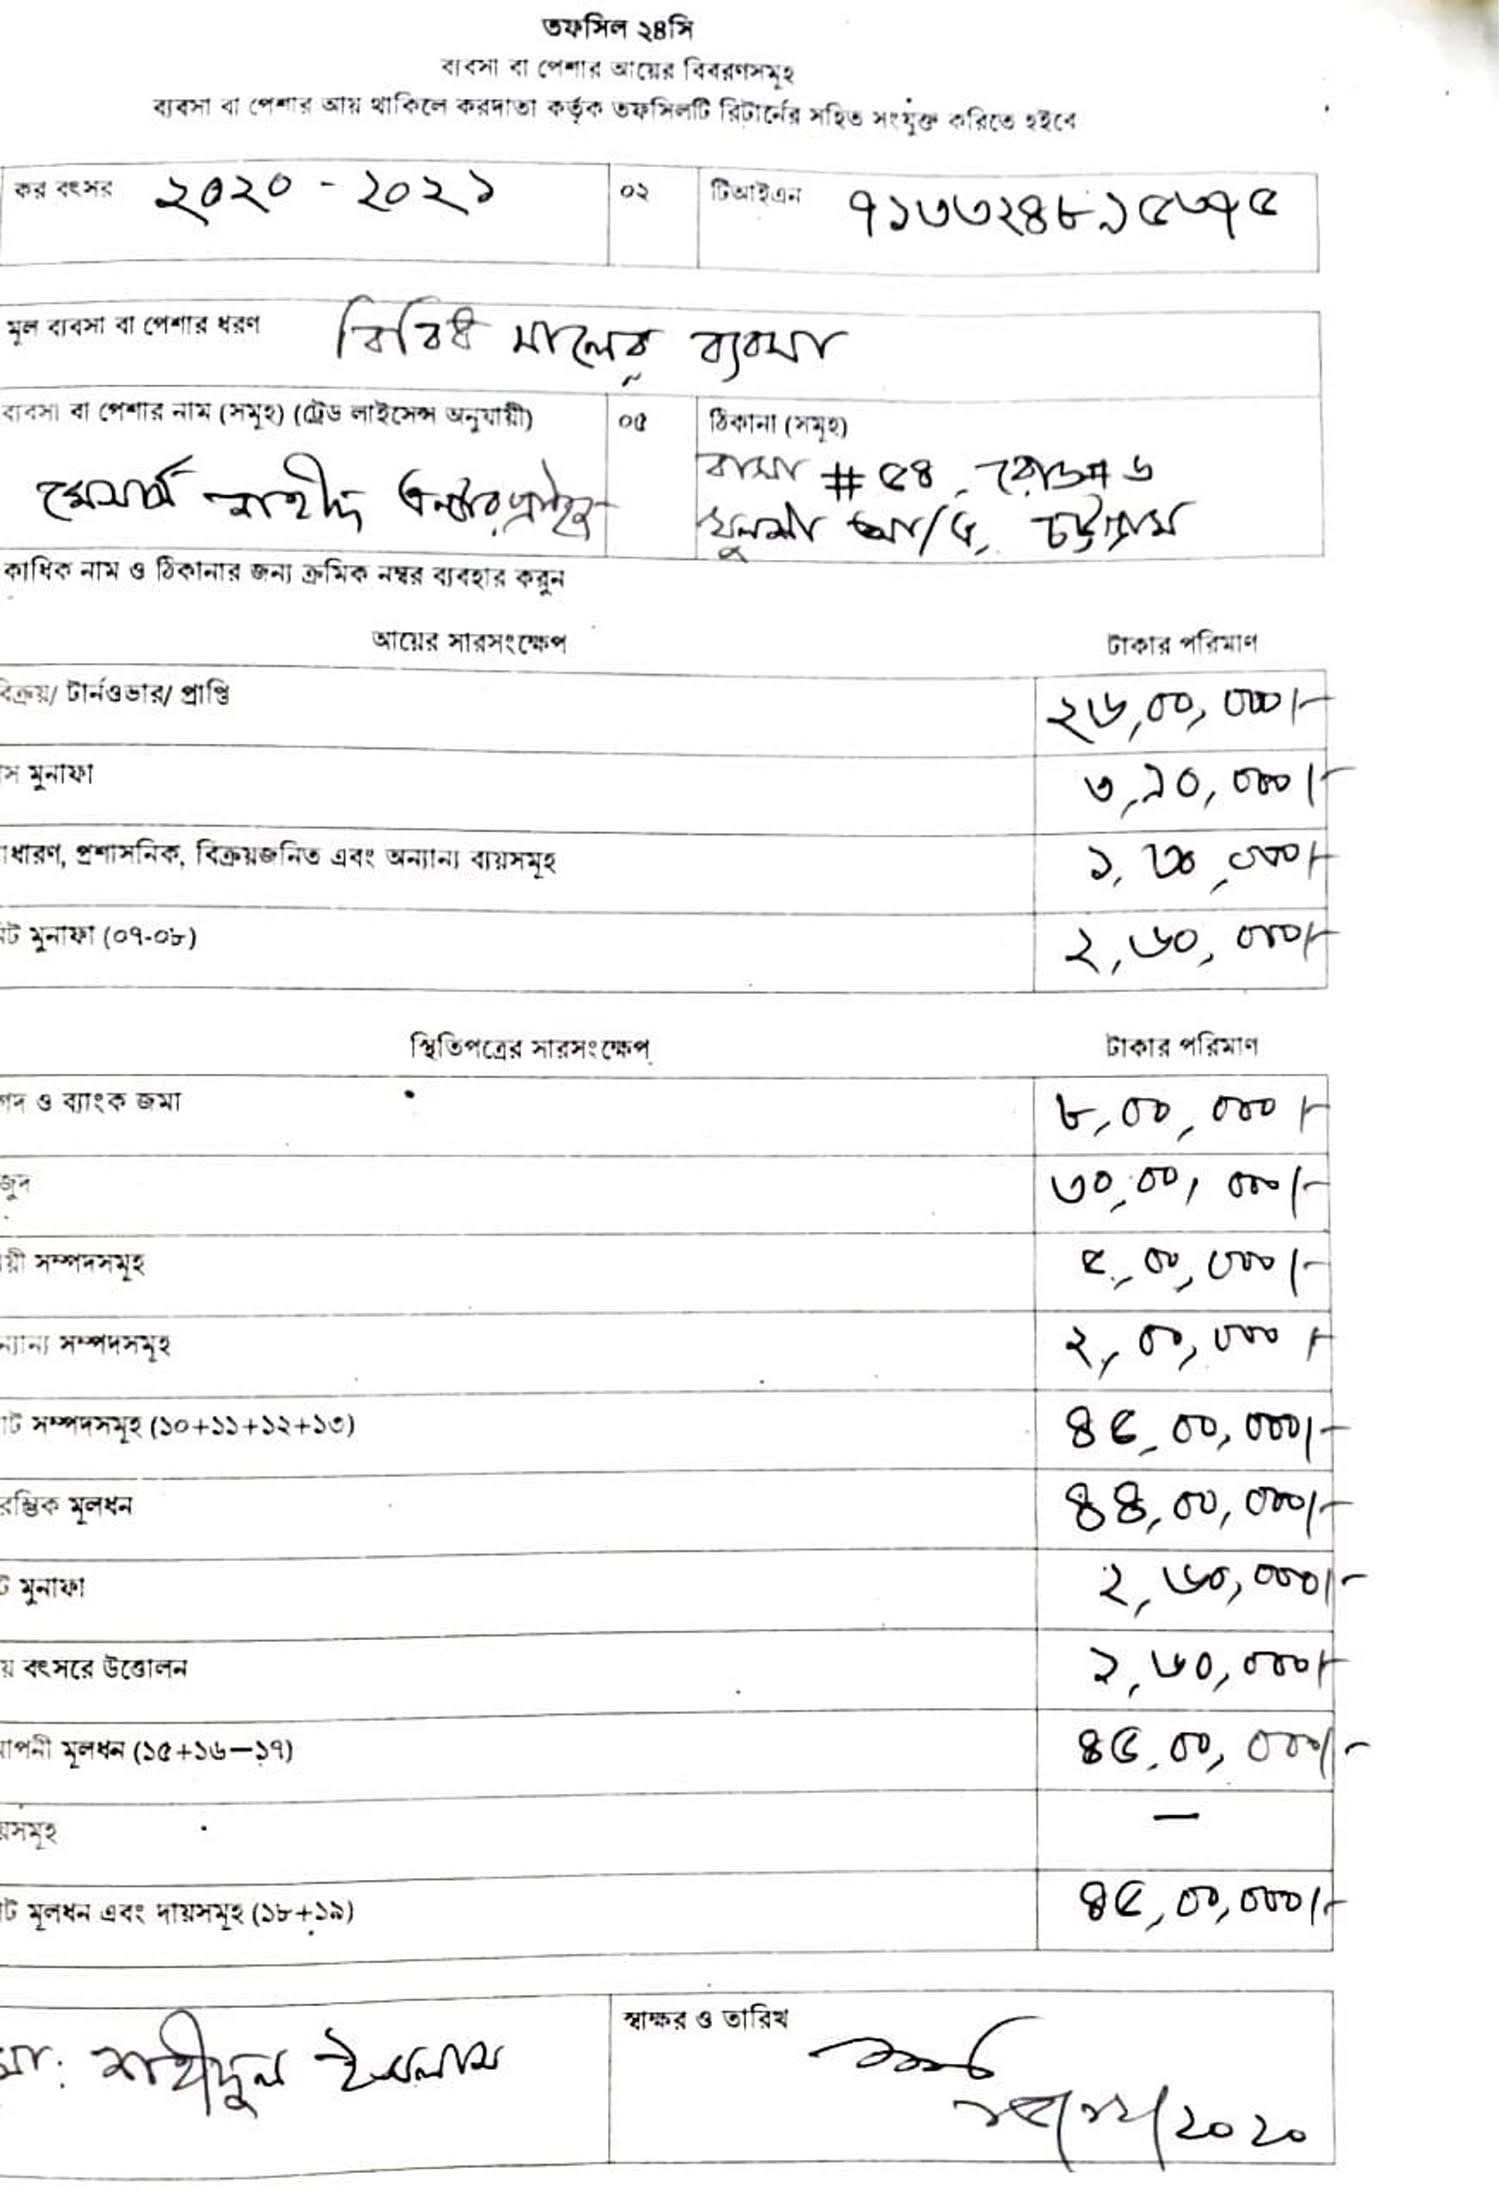 তফসিল ২৪সি
ব্যবসা বা পেশার আয়ের বিবরণসমূহ
ব্যবসা বা পেশার আয় থাকিলে করদাতা কর্তৃক তফসিলটি রিটার্নের সহিত সংযুক্ত করিতে হইবে
কর বৎসর ২০২০ - ২০২১ ০২ টিআইএন ৭১৩৩২৪৮১৫৩৭৫
মূল ব্যবসা বা পেশার ধরণ বিবিধ মালের ব্যবসা
ব্যবসা বা পেশার নাম (সমূহ) (ট্রেড লাইসেন্স অনুযায়ী) ০৫ ঠিকানা (সমূহ)
মেসার্স শহীদ এন্টারপ্রাইজ বাসা # ৫৪, রোড# ৬
খুলশী আ/এ, চট্টগ্রাম
কাধিক নাম ও ঠিকানার জন্য ক্রমিক নম্বর ব্যবহার করুন
আয়ের সারসংক্ষেপ টাকার পরিমাণ
বিক্রয়/ টার্নওভার/ প্রাপ্তি ২৬,০০,০০০/-
স মুনাফা ৩,৯০,০০০/-
াধারণ, প্রশাসনিক, বিক্রয়জনিত এবং অন্যান্য ব্যয়সমূহ ১,৩০,০০০/-
ট মুনাফা (০৭-০৮) ২,৬০,০০০/-
স্থিতিপত্রের সারসংক্ষেপ টাকার পরিমাণ
গদ ও ব্যাংক জমা ৮,০০,০০০/-
জুদ ৩০,০০,০০০/-
য়ী সম্পদসমূহ ৫,০০,০০০/-
ন্যান্য সম্পদসমূহ ২,০০,০০০/-
াট সম্পদসমূহ (১০+১১+১২+১৩) ৪৫,০০,০০০/-
রম্ভিক মূলধন ৪৪,০০,০০০/-
ট মুনাফা ২,৬০,০০০/-
য় বৎসরে উত্তোলন ২,৬০,০০০/-
াপনী মূলধন (১৫+১৬—১৭) ৪৫,০০,০০০/-
য়সমূহ —
াট মূলধন এবং দায়সমূহ (১৮+১৯) ৪৫,০০,০০০/-
স্বাক্ষর ও তারিখ
মো: শহীদুল ইসলাম
১৫/১২/২০২০